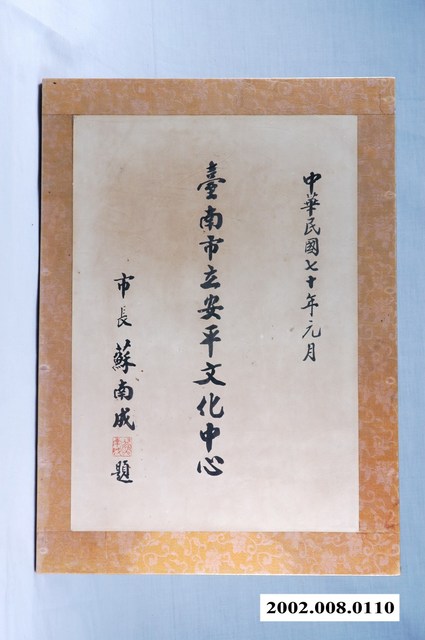 中華民國七十年元月
臺南市立安平文化中心
市長 蘇南成 題
2002.008.0110